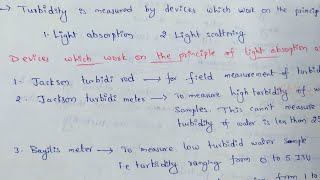 → Turbidity is measured by devices which work on the princip
1. Light absorption 2. Light scattering
Devices which work on the principle of light absorption a
1. Jackson turbidi rod → for field measurement of turbidi
2. Jackson turbidi meter → To measure high turbidity of w
samples. This cannot measure
turbidity of water is less than 25
3. Baylis meter → To measure low turbidid water sample
i.e turbidity ranging from 0 to 5 JTU
from 1 to